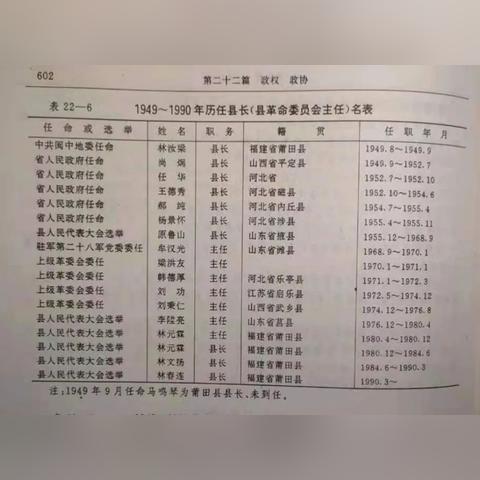 602
第二十二篇 政权 政协
表 22—6 1949~1990年历任县长(县革命委员会主任)名表
任命或选举 姓名 职务 籍贯 任职年月
中共闽中地委任命 林汝梁 县长 福建省莆田县 1949.8~1949.9
省人民政府任命 尚炯 县长 山西省平定县 1949.9~1952.7
省人民政府任命 任华 县长 河北省 1952.7~1952.10
省人民政府任命 王德秀 县长 河北省磁县 1952.10~1954.6
省人民政府任命 郝纯 县长 河北省内丘县 1954.7~1955.4
省人民政府任命 杨景怀 县长 河北省涉县 1955.4~1955.11
县人民代表大会选举 原鲁山 县长 山东省掖县 1955.12~1968.9
驻军第二十八军党委委任 牟汉光 主任 山东省潍县 1968.9~1970.1
上级革委会委任 梁洪友 主任 1970.1~1971.1
上级革委会委任 韩德厚 主任 河北省乐亭县 1971.1~1972.3
上级革委会委任 刘功 主任 江苏省启乐县 1972.5~1974.12
上级革委会委任 刘秉仁 主任 山西省武乡县 1974.12~1976.8
县人民代表大会选举 李陞亮 主任 山东省莒县 1976.12~1980.4
县人民代表大会选举 林元霖 主任 福建省莆田县 1980.4~1980.12
县人民代表大会选举 林元霖 县长 福建省莆田县 1980.12~1984.6
县人民代表大会选举 林文扬 县长 福建省莆田县 1984.6~1990.3
县人民代表大会选举 林春连 县长 福建省莆田县 1990.3~
注:1949年9月任命马鸣琴为莆田县县长、未到任。